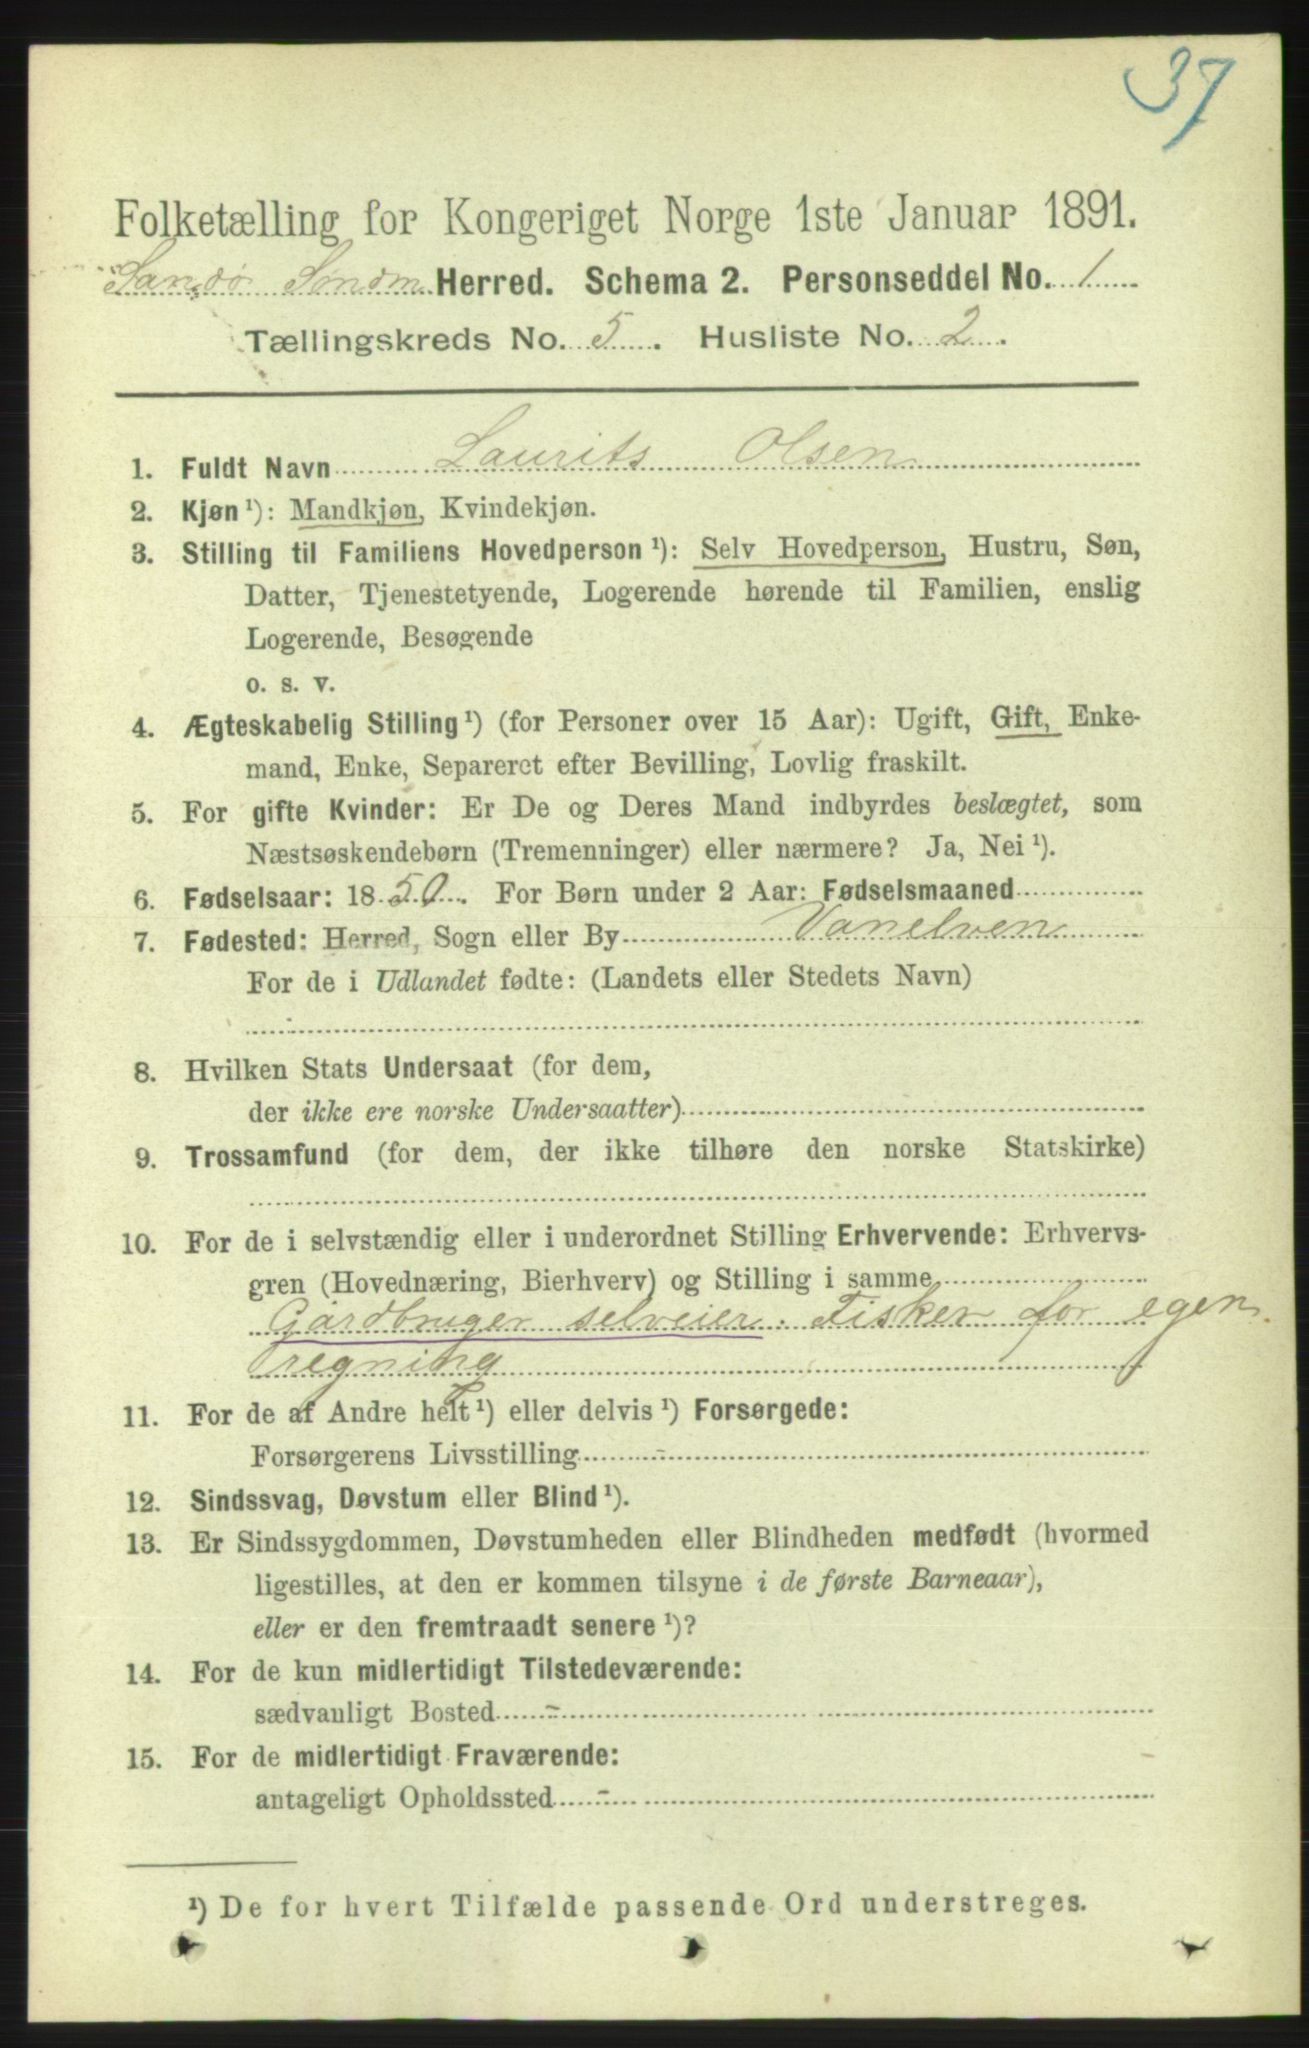 37
Folketælling for Kongeriget Norge 1ste Januar 1891.
Sandø Søndm Herred. Schema 2. Personseddel No. 1
Tællingskreds No. 5. Husliste No. 2.
1. Fuldt Navn Laurits Olsen
2. Kjøn ¹): Mandkjøn, Kvindekjøn.
3. Stilling til Familiens Hovedperson ¹): Selv Hovedperson, Hustru, Søn,
Datter, Tjenestetyende, Logerende hørende til Familien, enslig
Logerende, Besøgende
o. s. v.
4. Ægteskabelig Stilling ¹) (for Personer over 15 Aar): Ugift, Gift, Enke-
mand, Enke, Separeret efter Bevilling, Lovlig fraskilt.
5. For gifte Kvinder: Er De og Deres Mand indbyrdes beslægtet, som
Næstsøskendebørn (Tremenninger) eller nærmere? Ja, Nei ¹).
6. Fødselsaar: 1850. For Børn under 2 Aar: Fødselsmaaned
7. Fødested: Herred, Sogn eller By Vanelven
For de i Udlandet fødte: (Landets eller Stedets Navn)
8. Hvilken Stats Undersaat (for dem,
der ikke ere norske Undersaatter)
9. Trossamfund (for dem, der ikke tilhøre den norske Statskirke)
10. For de i selvstændig eller i underordnet Stilling Erhvervende: Erhvervs-
gren (Hovednæring, Bierhverv) og Stilling i samme
Gårdbruger selveier. Fisker for egen
regning
11. For de af Andre helt ¹) eller delvis ¹) Forsørgede:
Forsørgerens Livsstilling -
12. Sindssvag, Døvstum eller Blind ¹).
13. Er Sindssygdommen, Døvstumheden eller Blindheden medfødt (hvormed
ligestilles, at den er kommen tilsyne i de første Barneaar),
eller er den fremtraadt senere ¹)?
14. For de kun midlertidigt Tilstedeværende:
sædvanligt Bosted -
15. For de midlertidigt Fraværende:
antageligt Opholdssted -
¹) De for hvert Tilfælde passende Ord understreges.